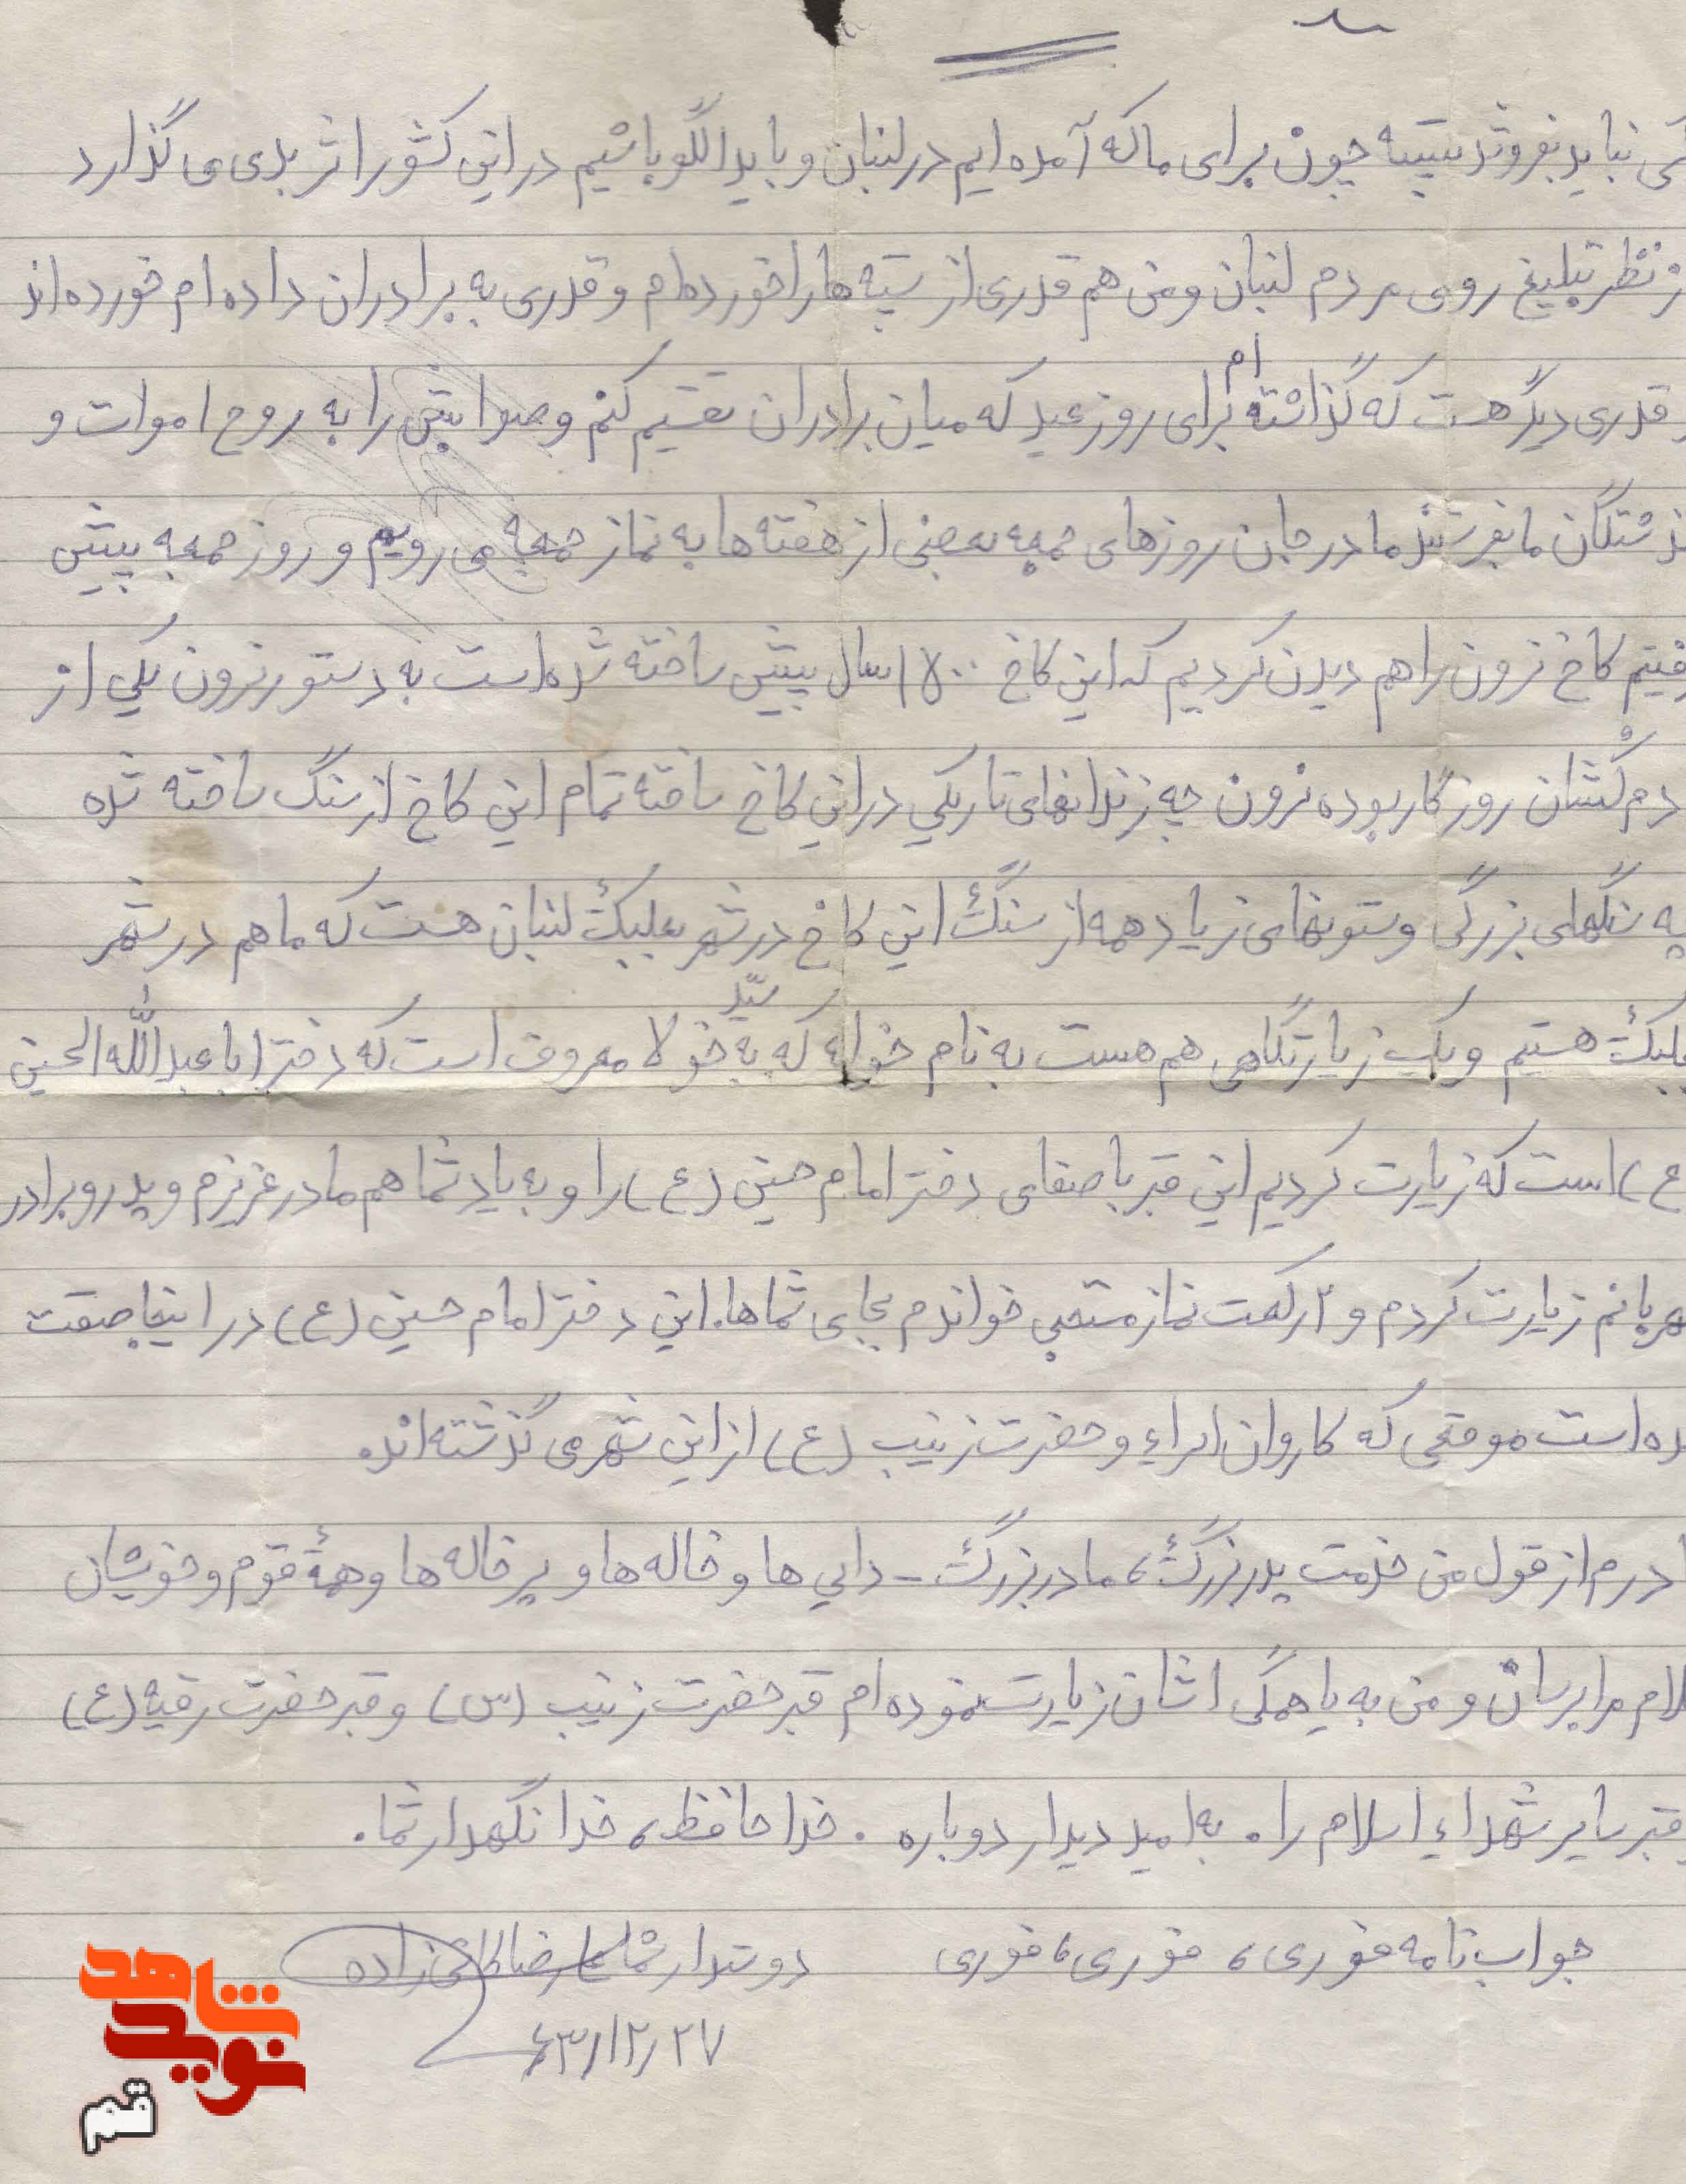 نباید بفروشد بسته چون برای ما که آمده ایم در لبنان و باید الگو باشیم در این کشور اثر بدی می گذارد
ز نظر تبلیغ روی مردم لبنان و من هم قدری از پسته ها را خورده ام و قدری به برادران داده ام خورده اند
قدری دیگر هست که گذاشته ام برای روز عید که میان برادران تقسیم کنم و صوابش را به روح اموات و
ذشتگان ما بفرستند مادر جان روزهای جمعه بعضی از هفته ها به نماز جمعه می رویم و روز جمعه پیش
فتیم کاخ نرون را هم دیدن کردیم که این کاخ ۱۷۰۰ سال پیش ساخته شده است به دستور نرون یکی از
دم کشان روزگار بوده نرون چه زندانهای تاریکی در این کاخ ساخته تمام این کاخ از سنگ ساخته شده
چه سنگهای بزرگی و ستونهای زیاد همه از سنگ این کاخ در شهر بعلبک لبنان هست که ما هم در شهر
علبک هستیم و یک زیارتگاهی هم هست به نام خوله که به سید خولا معروف است که دختر ابا عبدالله الحسین
ع) است که زیارت کردیم این قبر با صفای دختر امام حسین (ع) را و به یاد شما هم مادر عزیزم و پدر و برادر
هربانم زیارت کردم و ۲ رکعت نماز مستحبی خواندم بجای شماها. این دختر امام حسین (ع) در اینجا صقت
ده است موقعی که کاروان اسراء و حضرت زینب (ع) از این شهر می گذشته اند.
ادرم از قول من خدمت پدر بزرگ، مادر بزرگ - دایی ها و خاله ها و پسر خاله ها و همهٔ قوم و خویشان
لام مرا برسان و من به یا همگی اشان زیارت نموده ام قبر حضرت زینب (س) و قبر حضرت رقیه (ع)
قبر سایر شهداء اسلام را. به امید دیدار دوباره. خدا حافظ، خدا نگهدار شما.
جواب نامه فوری، فوری، فوری دوستدار شما
۶۳/۱۲/۲۷
شاهد
نوید
قم